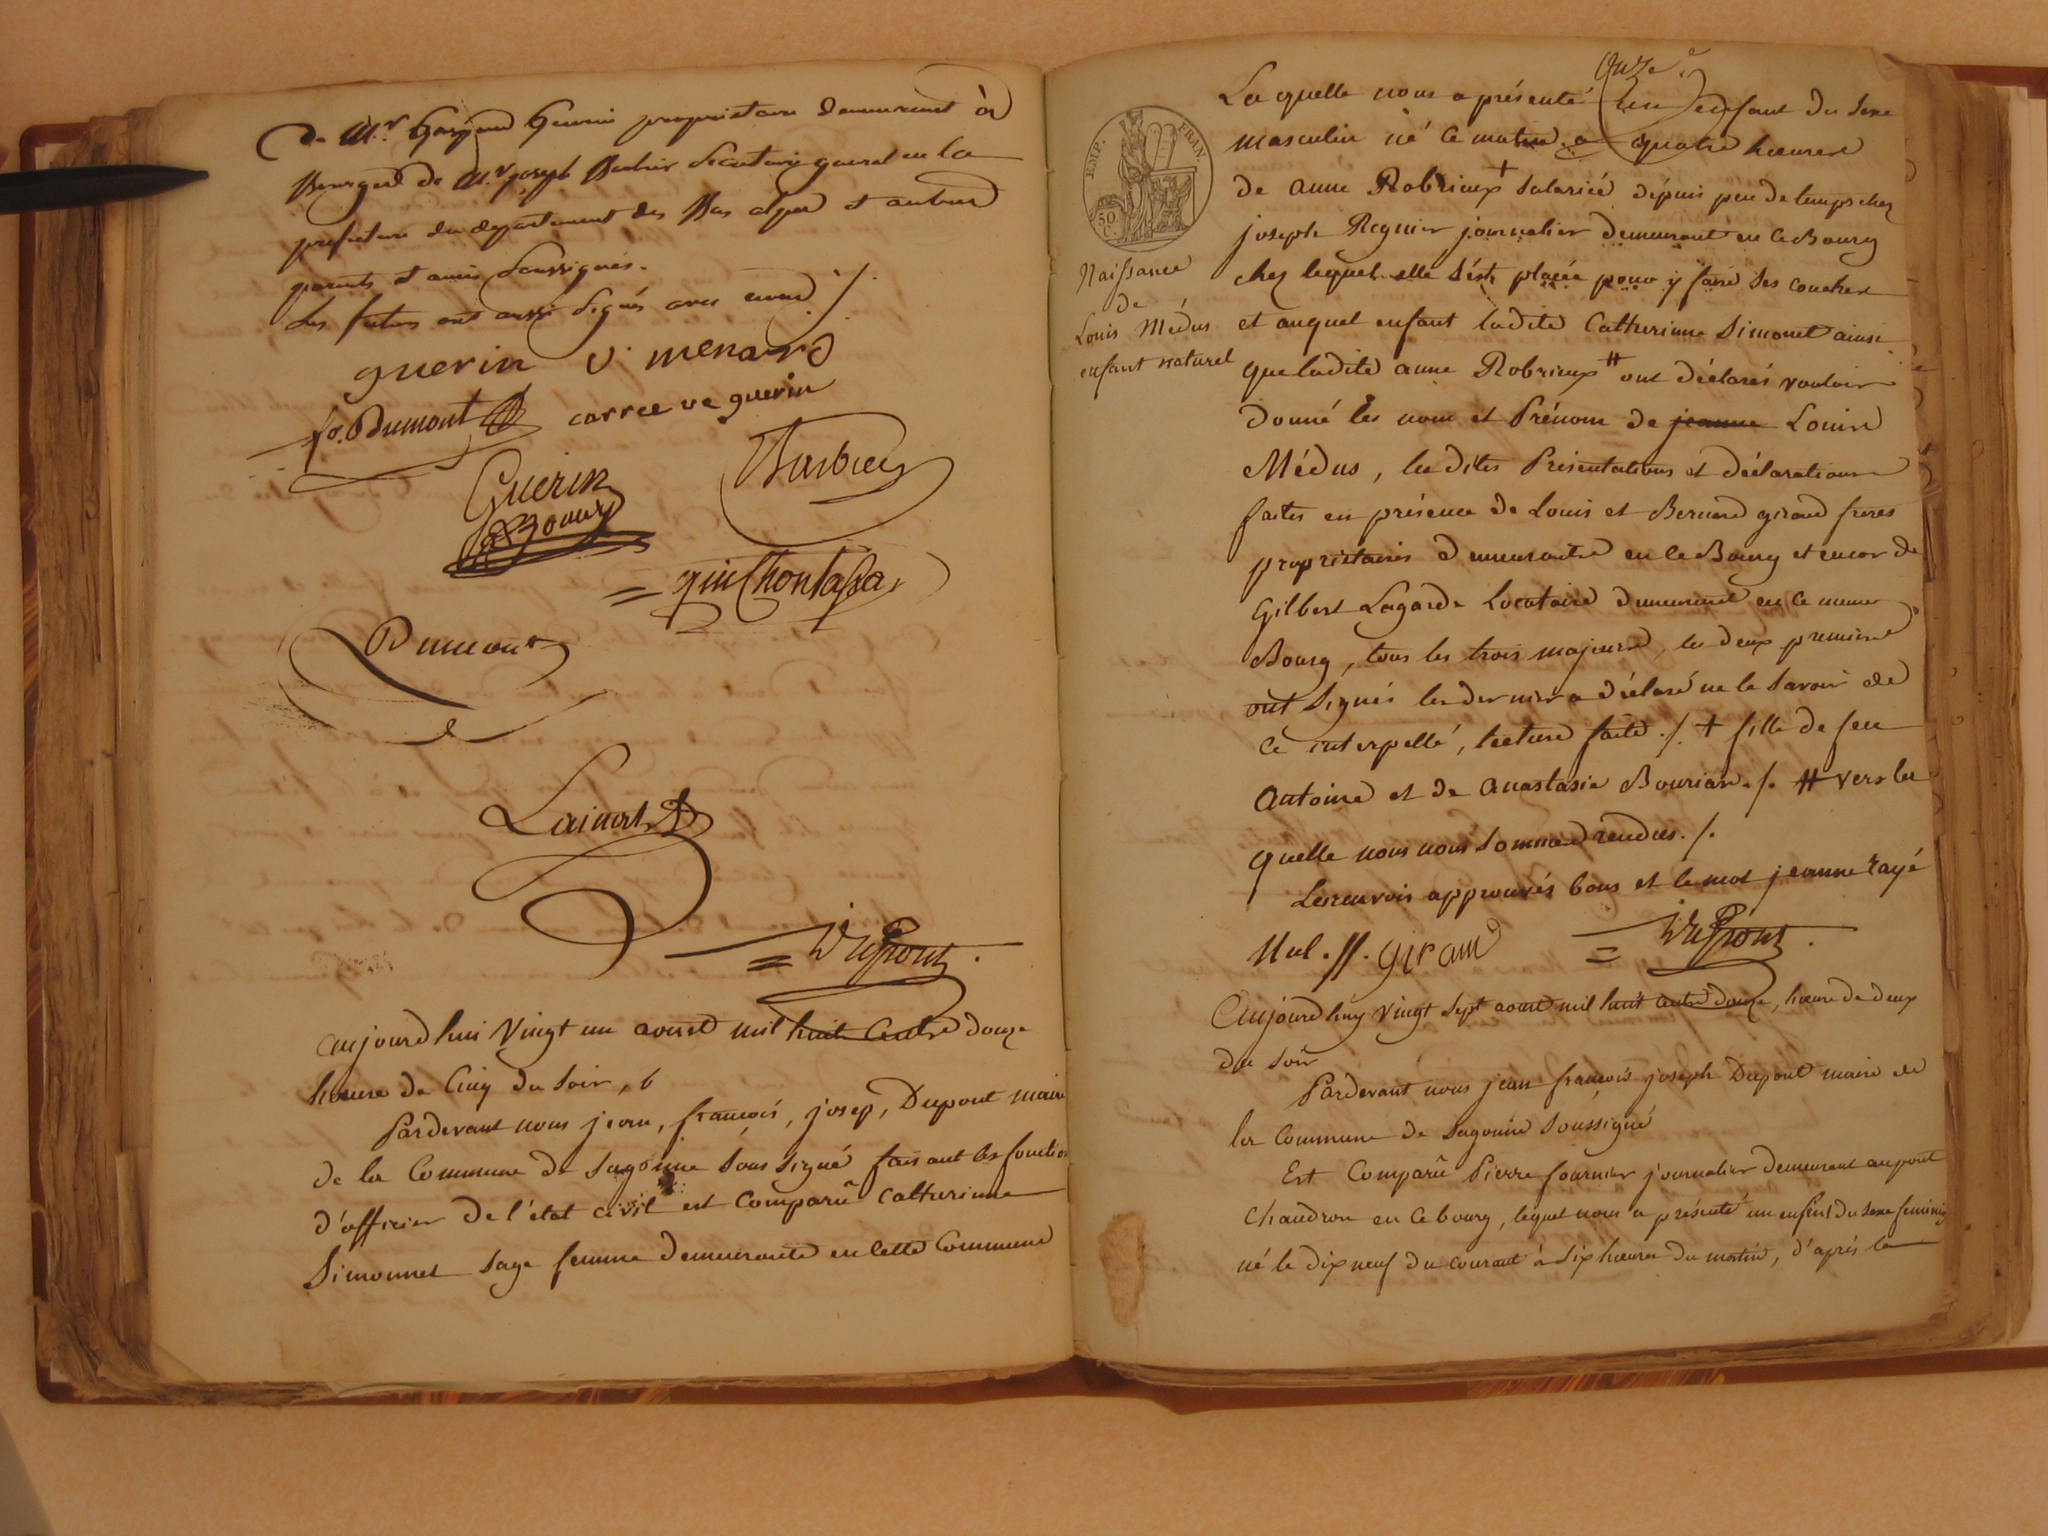 de Mr Guerin propriétaire demeurant à
Bourges de Mr joseph Barbier Secretaire general en la
prefecture du département des Bas alpes et autres
parents et amis Soussignés.
Les futurs ont aussi Signés avec nous ./.
guerin v. menard
fs. Dumont carree ve guerin
Guerin
Barbier
quinChontassa
Dumont
Lainart
Dupont
aujourdhui Vingt un aoust mil huit Centre douze
heure de Cinq du Soir, 6
Pardevant nous jean, françois, josep, Dupont maire
de la Commune de Sagonne Sous Signé faisant les fonction
d'officier de l'état civil est Comparû Catherinne
Simonnet Sage femme demeurante en Cette Commune
EMP. FRAN.
50 C.
Naissance
de
Louis Médus
enfant naturel
onze e
Laquelle nous a présenté un enfant du Sexe
masculin né Ce matin a quatre heures
de anne Robrieux + Salariée dépuis peu de temps chez
joseph Regnier journalier demeurant en ce Bourg
chez lequel elle S'est placée pour y faire Ses couches
et auquel enfant ladite Catherinne Simonet ainsi
que ladite anne Robrieux # ont déclarés vouloir
donné les nom et Prénom de jeanne Louis
Médus, lesdites Présentations et déclarations
faites en présence de Louis et Bernard giraud freres
propriétaires demeurante en ce Bourg et encor de
Gilbert Lagarde Locataire demeurant en ce meme
Bourg, tous les trois majeurs, les deux premiers
ont Signés le dernier a déclaré ne le Savoir de
Ce interpellé, lecture faite ./. + fille de feu
Antoine et de Anastasie Bourian ./. # vers la
quelle nous nous Sommes rendus ./.
Les renvois approuvés bons et le mot jeanne rayé
Nul ./. giraud Dupont
Aujourdhuy Vingt Sept aout mil huit Centre douze, heure de deux
du Soir
Pardevant nous jean françois joseph Dupont maire de
la Commune de Sagonne Soussigné
Est Comparû Pierre fournier journalier demeurant au pont
Chaudron en Ce bourg, lequel nous a présenté un enfent du Sexe feminin
né le dix neuf du courant à Six heures du matin, d'aprés la